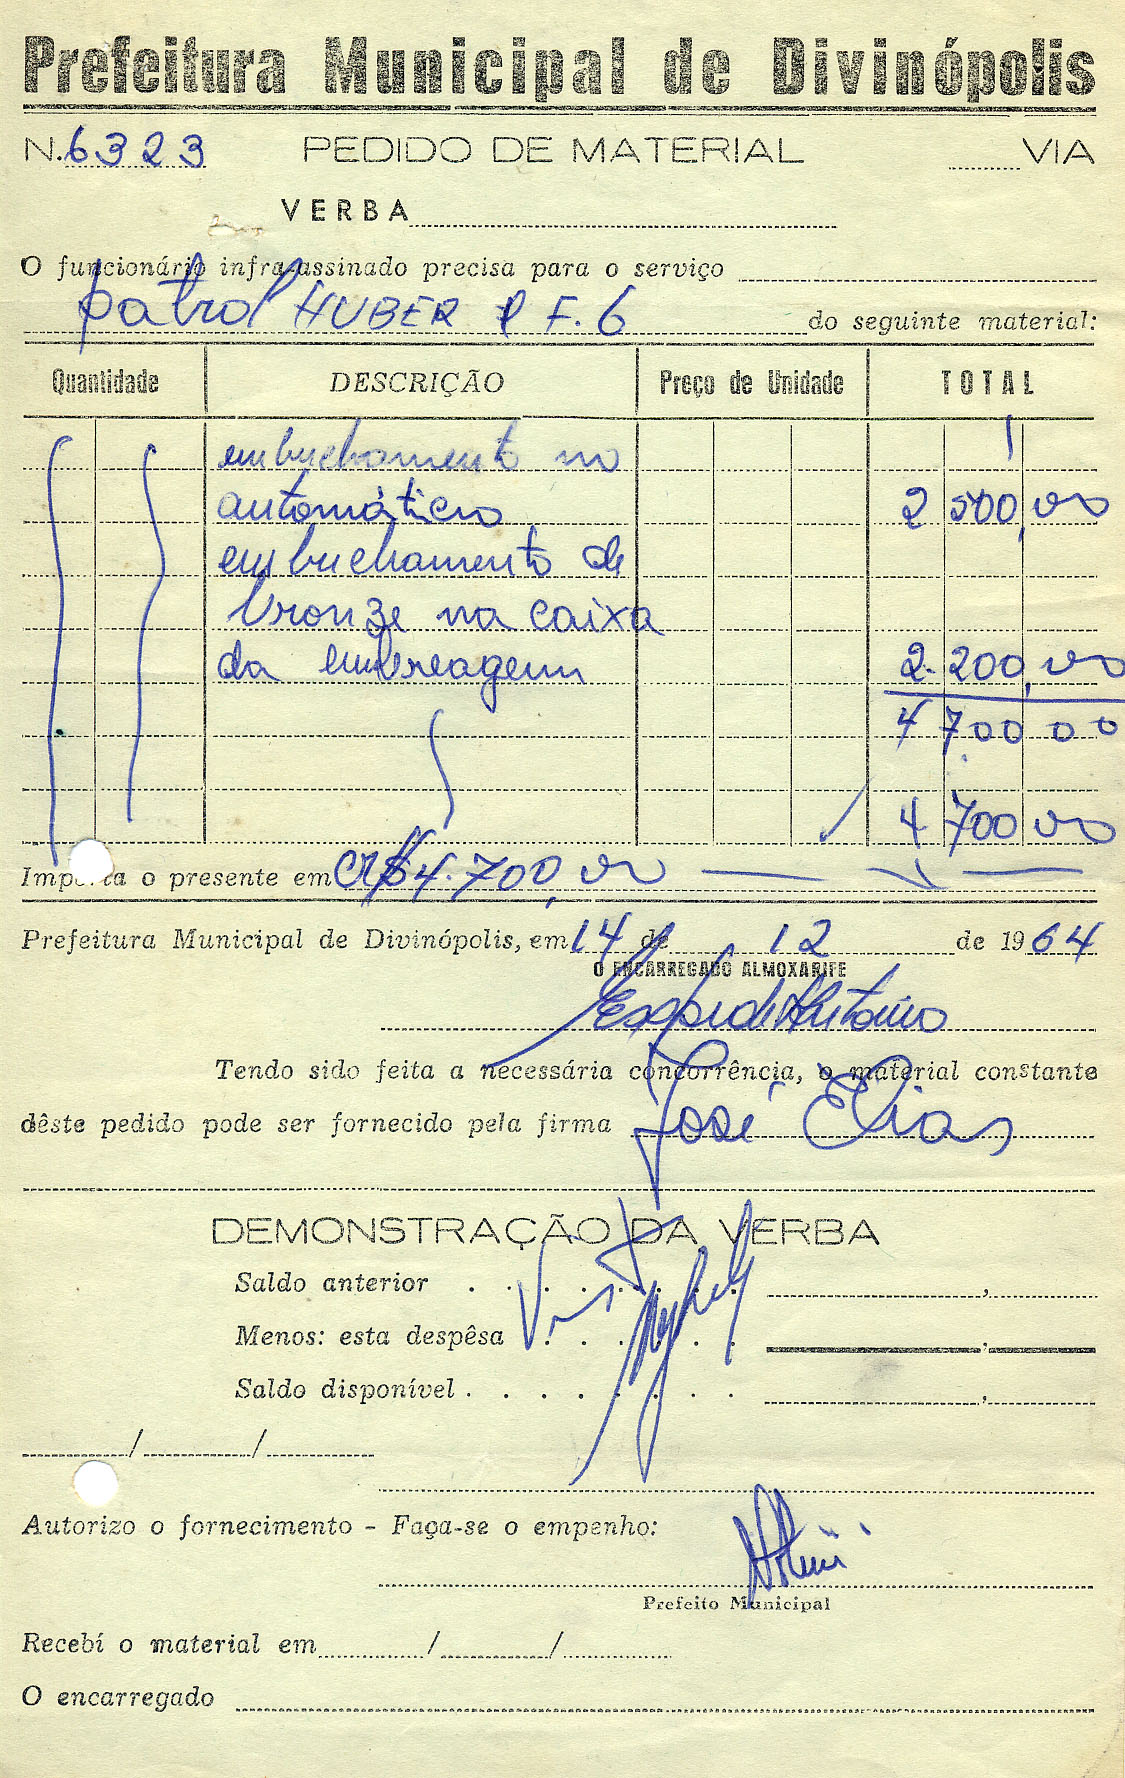 Prefeitura Municipal de Divinópolis
N. 6323 PEDIDO DE MATERIAL VIA
VERBA
O funcionário infra-assinado precisa para o serviço
patrol HUBER P F. 6 do seguinte material:
Quantidade DESCRIÇÃO Preço de Unidade TOTAL
embuchamento no
automático 2 500,00
embuchamento de
bronze na caixa
da embreagem 2.200,00
4 700 00
4 700 00
Importa o presente em CR$ 4.700,00
Prefeitura Municipal de Divinópolis, em 14 de 12 de 1964
O ENCARREGADO ALMOXARIFE
Tendo sido feita a necessária concorrência, o material constante
dêste pedido pode ser fornecido pela firma José Elias
DEMONSTRAÇÃO DA VERBA
Saldo anterior . . . . . . . . ,
Menos: esta despêsa . . . . . . ,
Saldo disponível . . . . . . . . ,
/ /
Autorizo o fornecimento - Faça-se o empenho:
Prefeito Municipal
Recebí o material em / /
O encarregado